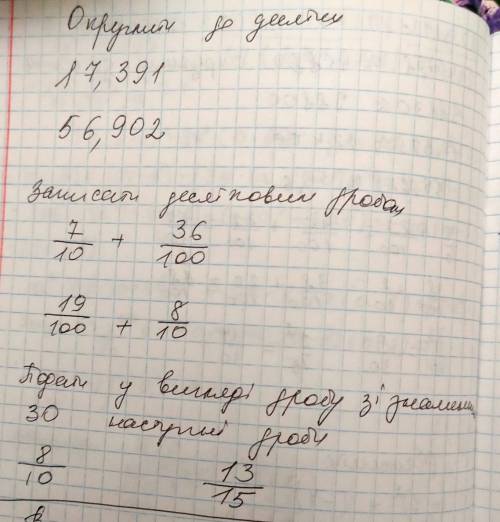 Округлити до десятих
17,391
56,902
Записати десятковим дробом
7/10 + 36/100
19/100 + 8/10
Подати у вигляді дробу зі знамен
30 наступні дроби
8/10 13/15